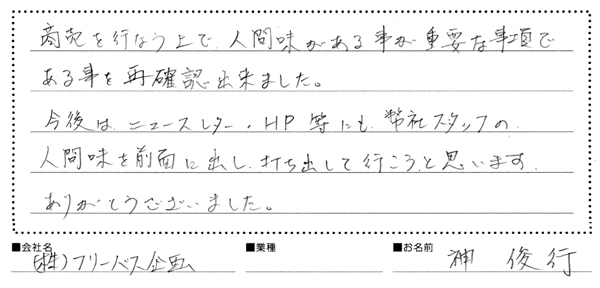 商売を行なう上で、人間味がある事が重要な事項で
ある事を再確認出来ました。
今後は、ニュースレター・HP等にも、弊社スタッフの
人間味を前面に出し、打ち出して行こうと思います。
ありがとうございました。
■会社名 ■業種 ■お名前
(株)フリーバス企画 神 俊行